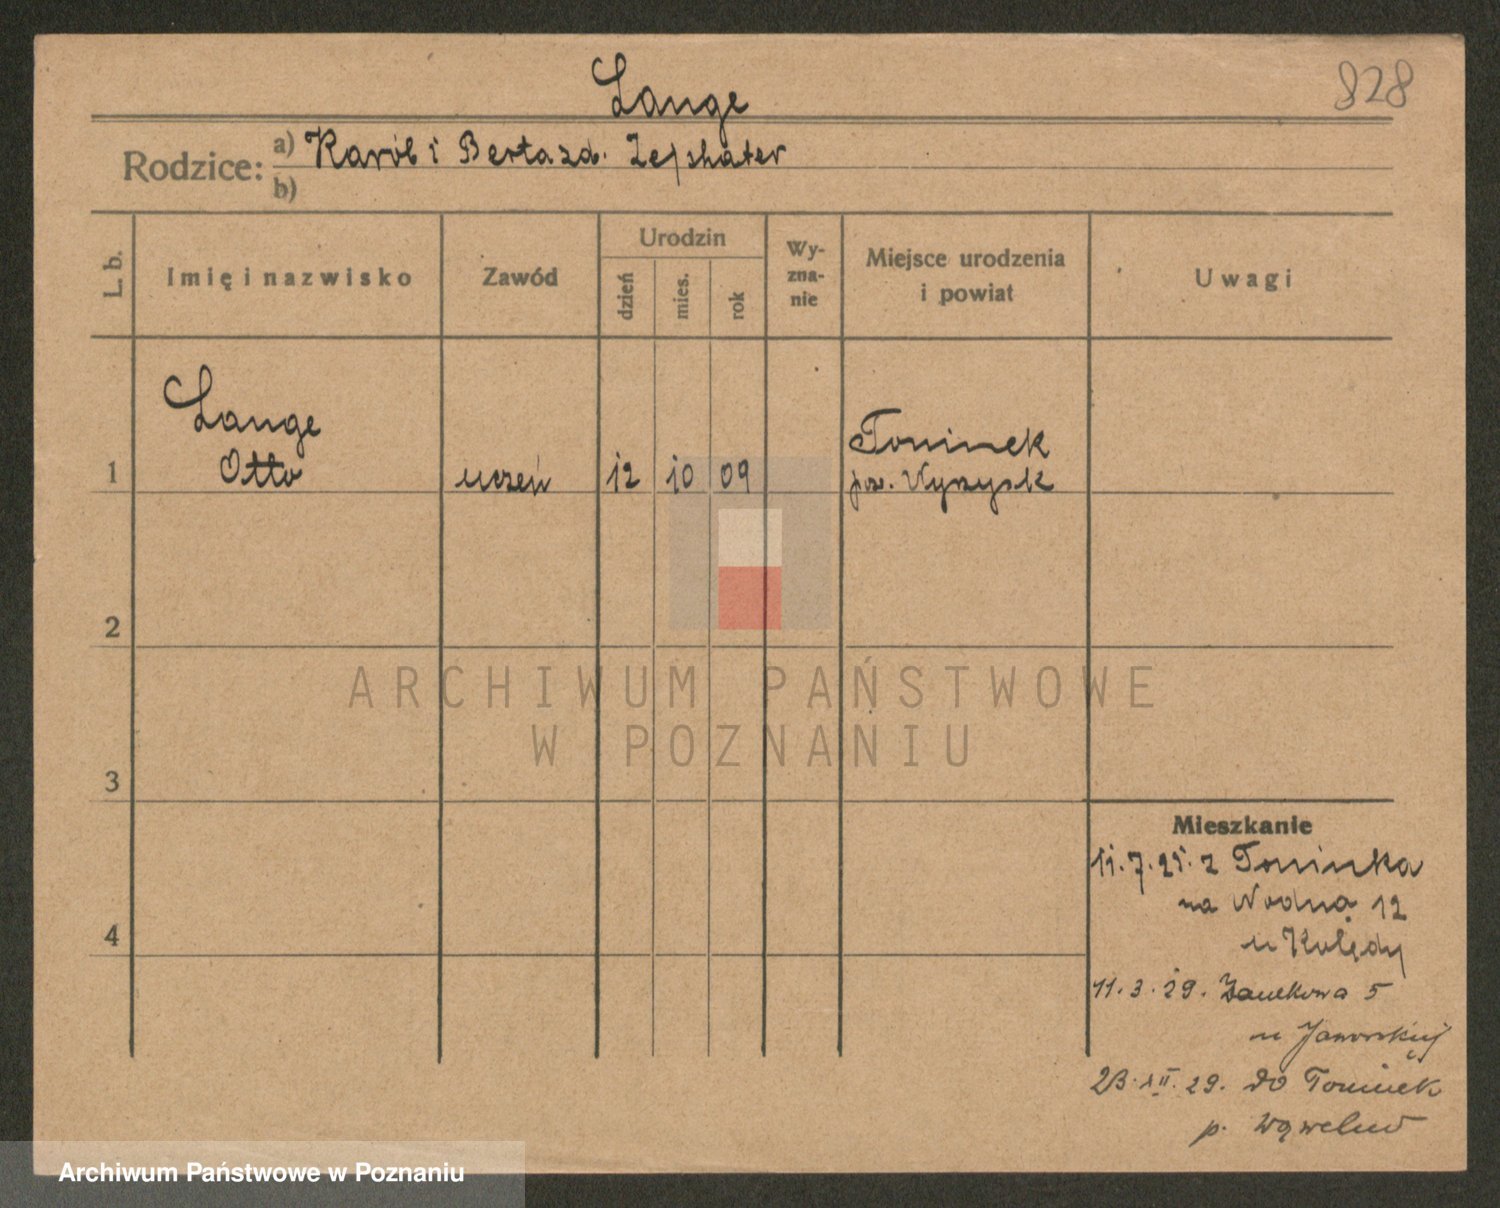 Lange
828
Rodzice: a) Karól i Berta zd.
b)
L. b.
Imię i nazwisko
Zawód
Urodzin
dzień
mies.
rok
Wy-
zna-
nie
Miejsce urodzenia
i powiat
Uwagi
Lange
Tominek
1 Otto uczeń 12 10 09 pow. Wyrzysk
2
ARCHIWUM PAŃSTWOWE
W POZNANIU
3
Mieszkanie
11.7.25. z Tominka
na Wodną 12
u Kolędy
4
11.3.29. Zamkowa 5
u Jaworskiej
23.XII.29. do Tominek
p.
Archiwum Państwowe w Poznaniu